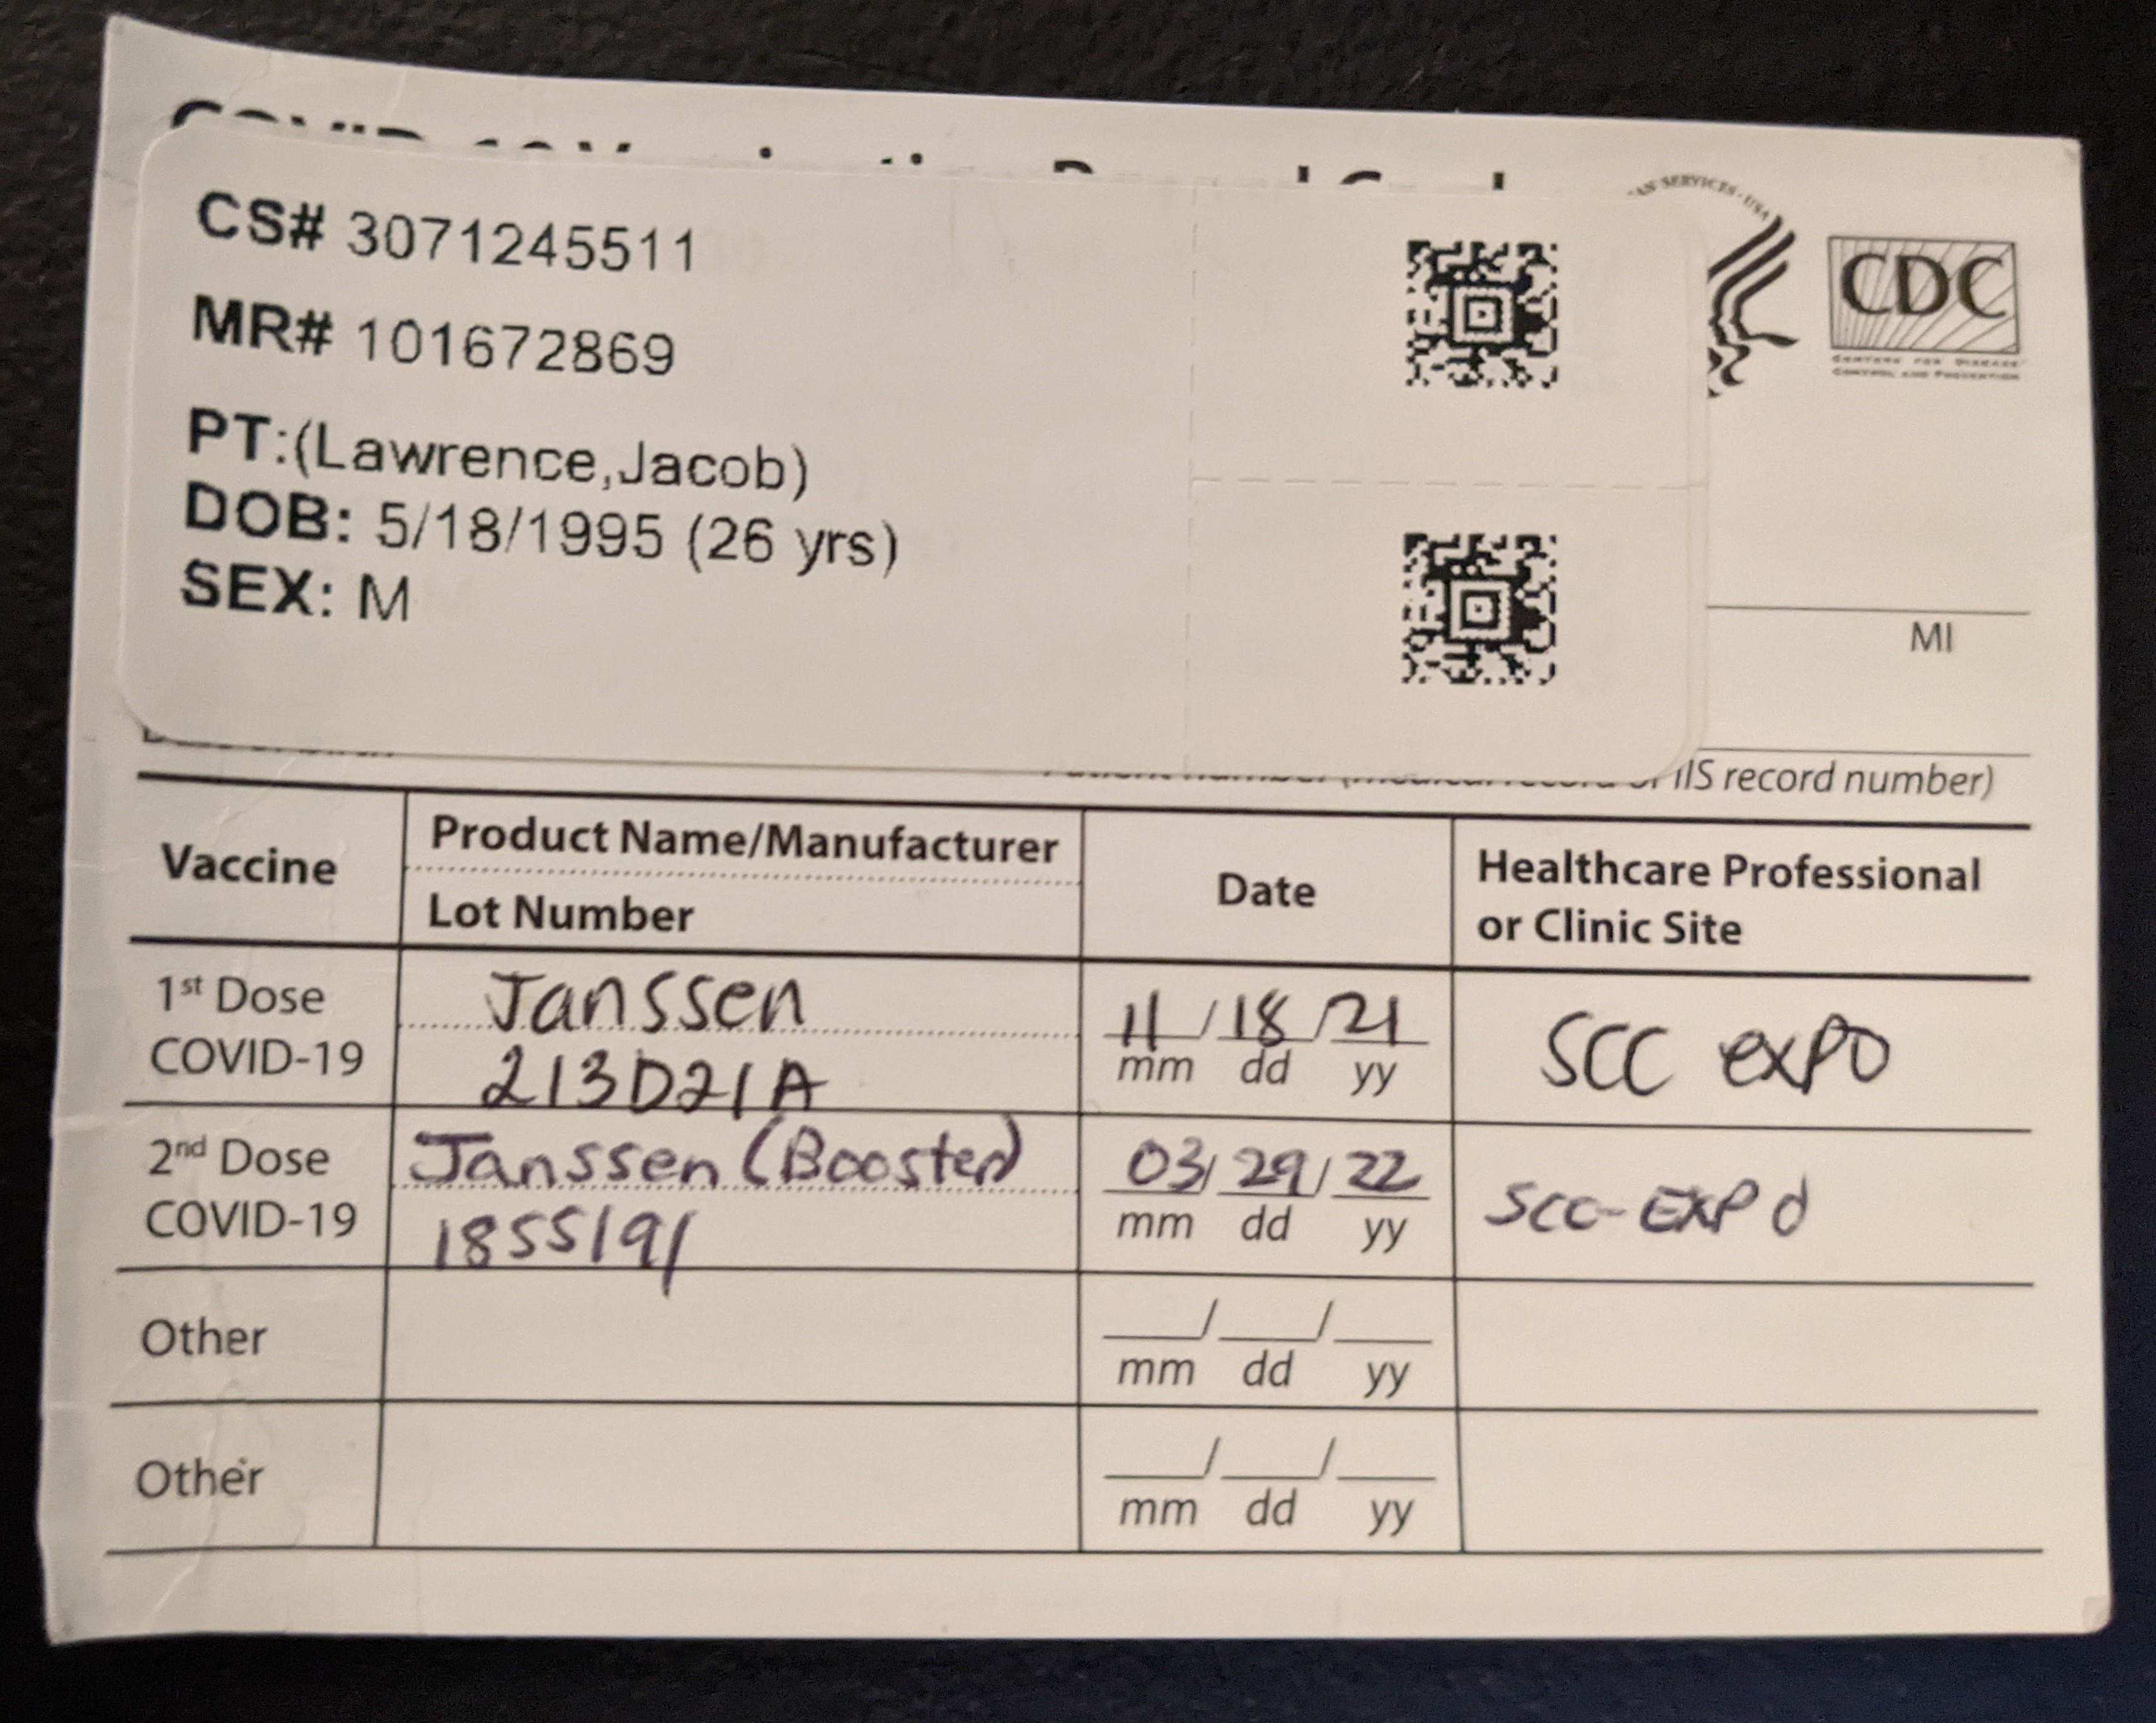 CS# 3071245511
MR# 101672869
PT:(Lawrence,Jacob)
DOB: 5/18/1995 (26 yrs)
SEX: M
AN SERVICES · USA
CDC
CENTERS FOR DISEASE
CONTROL AND PREVENTION
MI
IIS record number)
Vaccine
Product Name/Manufacturer
Lot Number
Date
Healthcare Professional
or Clinic Site
1st Dose
COVID-19
Janssen
213D21A
11/18/21
mm dd yy
SCC expo
2nd Dose
COVID-19
Janssen (Booster)
1855191
03/29/22
mm dd yy
SCC-EXPO
Other
mm dd yy
Other
mm dd yy